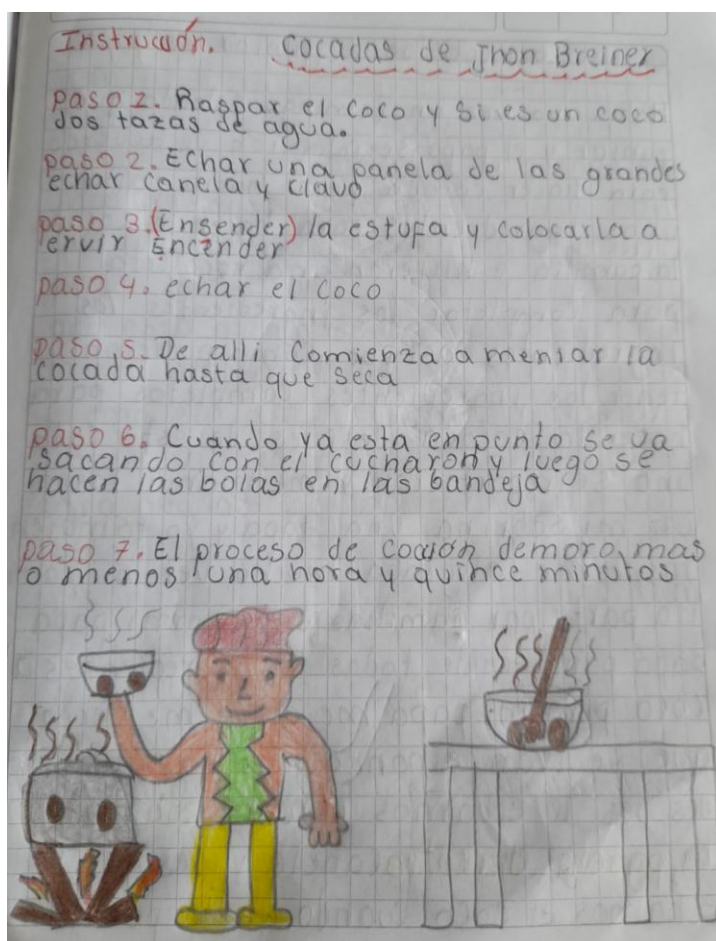 Instrucción. Cocadas de Jhon Breiner
paso 1. Raspar el coco y si es un coco
dos tazas de agua.
paso 2. Echar una panela de las grandes
echar canela y clavo
paso 3. (Ensender) la estufa y colocarla a
ervir Encender
paso 4. echar el coco
paso 5. De alli comienza a meniar la
cocada hasta que seca
paso 6. Cuando ya esta en punto se va
sacando con el cucharon y luego se
hacen las bolas en las bandeja
paso 7. El proceso de cocción demoro mas
o menos una hora y quince minutos